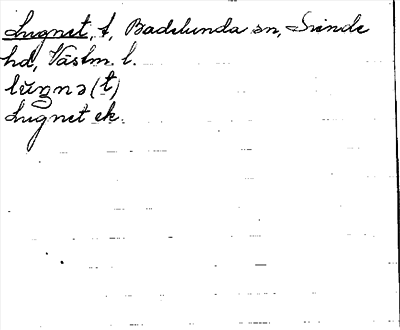 Lugnet, t, Badelunda sn, Siende
hd, Västm. l.
lŭŋnə (t)
Lugnet ek.